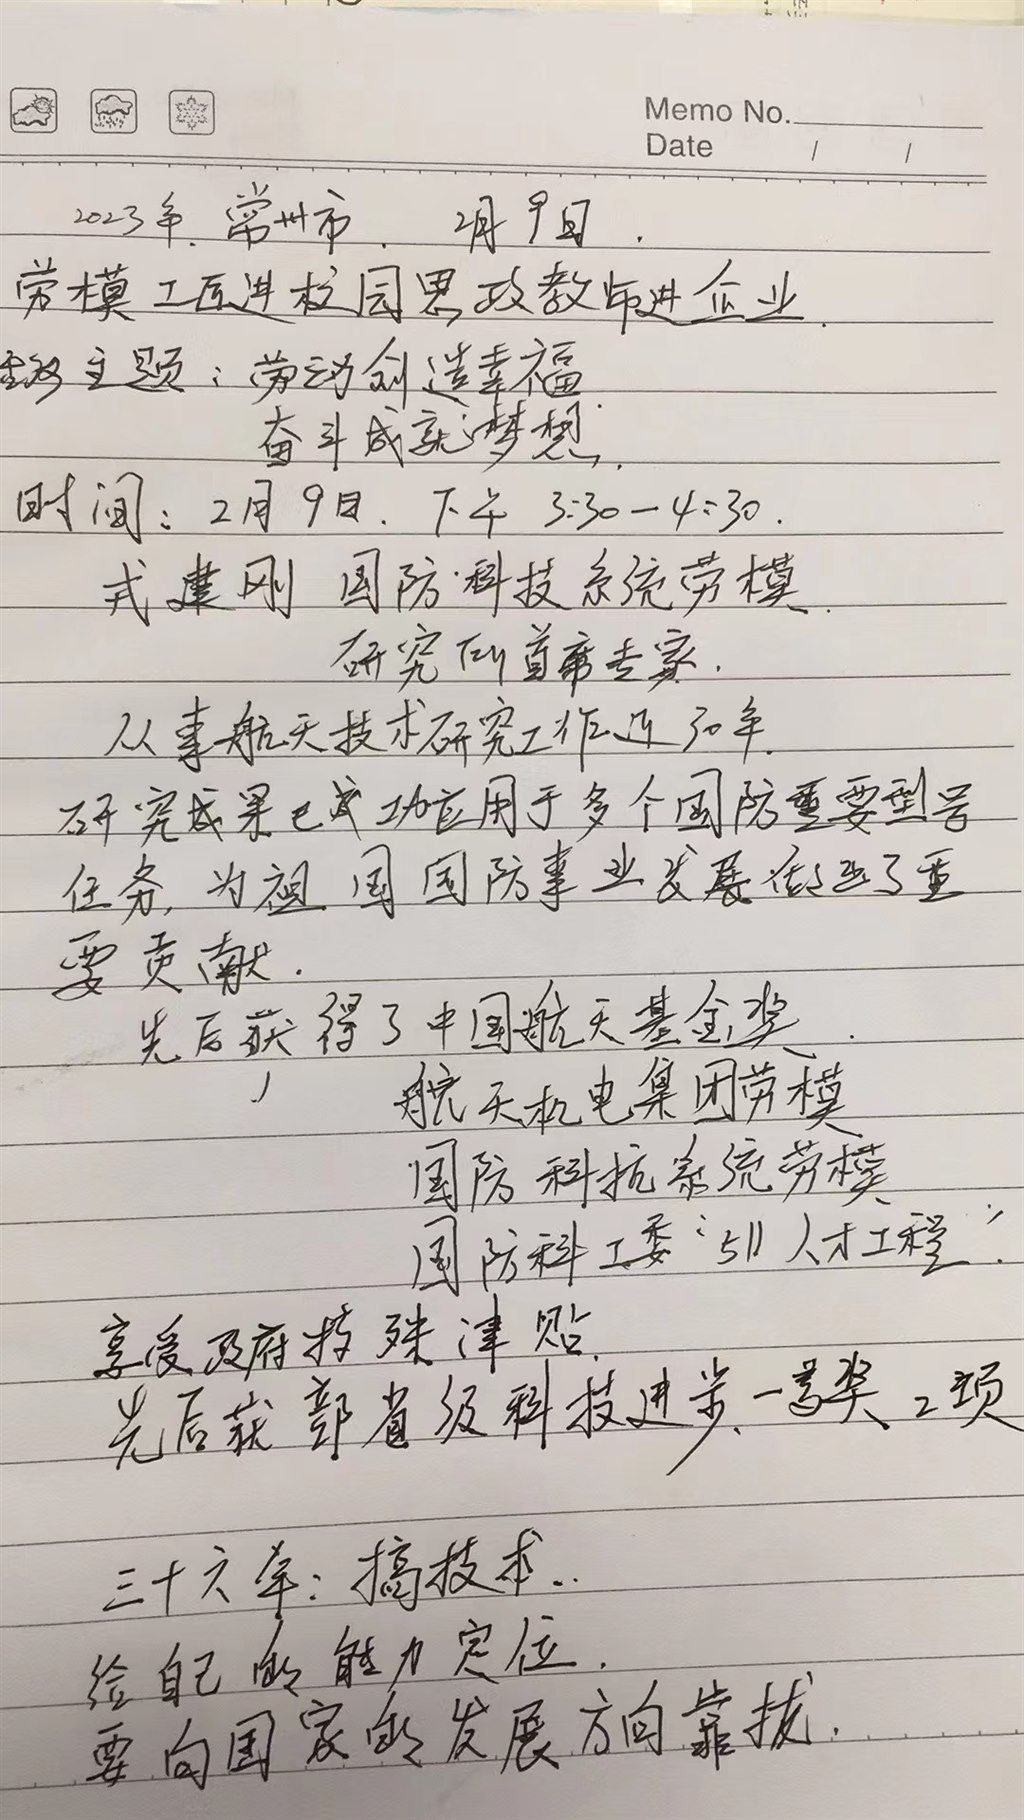 Memo No.
Date / /
2023年.常州市. 2月9日.
劳模工匠进校园思政教师进企业.
主题:劳动创造幸福
奋斗成就梦想.
时间:2月9日.下午 3:30—4:30.
建刚 国防科技系统劳模.
研究所首席专家.
从事航天技术研究工作近30年.
研究成果已成功应用于多个国防重要型号
任务,为祖国国防事业发展做出了重
要贡献.
先后获得了中国航天基金奖.
航天机电集团劳模
国防科技系统劳模
国防科工委“511人才工程”.
享受政府特殊津贴.
先后获部省级科技进步一等奖2项
三十六年:搞技术..
给自己的能力定位.
要向国家的发展方向靠拢.